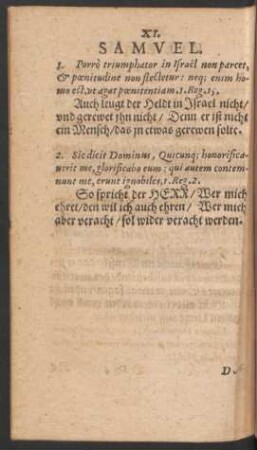 XI.
SAMVEL.
1. Porrò triumphator in Israël non parcet,
& pœnitudine non flectetur: neq; enim ho-
mo est, ut agat pœnitentiam. 1. Reg. 15.
Auch leugt der Heldt in Israel nicht/
vnd gerewet jhn nicht/ Denn er ist nicht
ein Mensch/ das jn etwas gerewen solte.
2. Sic dicit Dominus, Quicunq; honorifica-
verit me, glorificabo eum: qui autem contem-
nunt me, erunt ignobiles. 1. Reg. 2.
So spricht der HERR/ Wer mich
ehret/ den wil ich auch ehren/ Wer mich
aber veracht/ sol wider veracht werden.
D